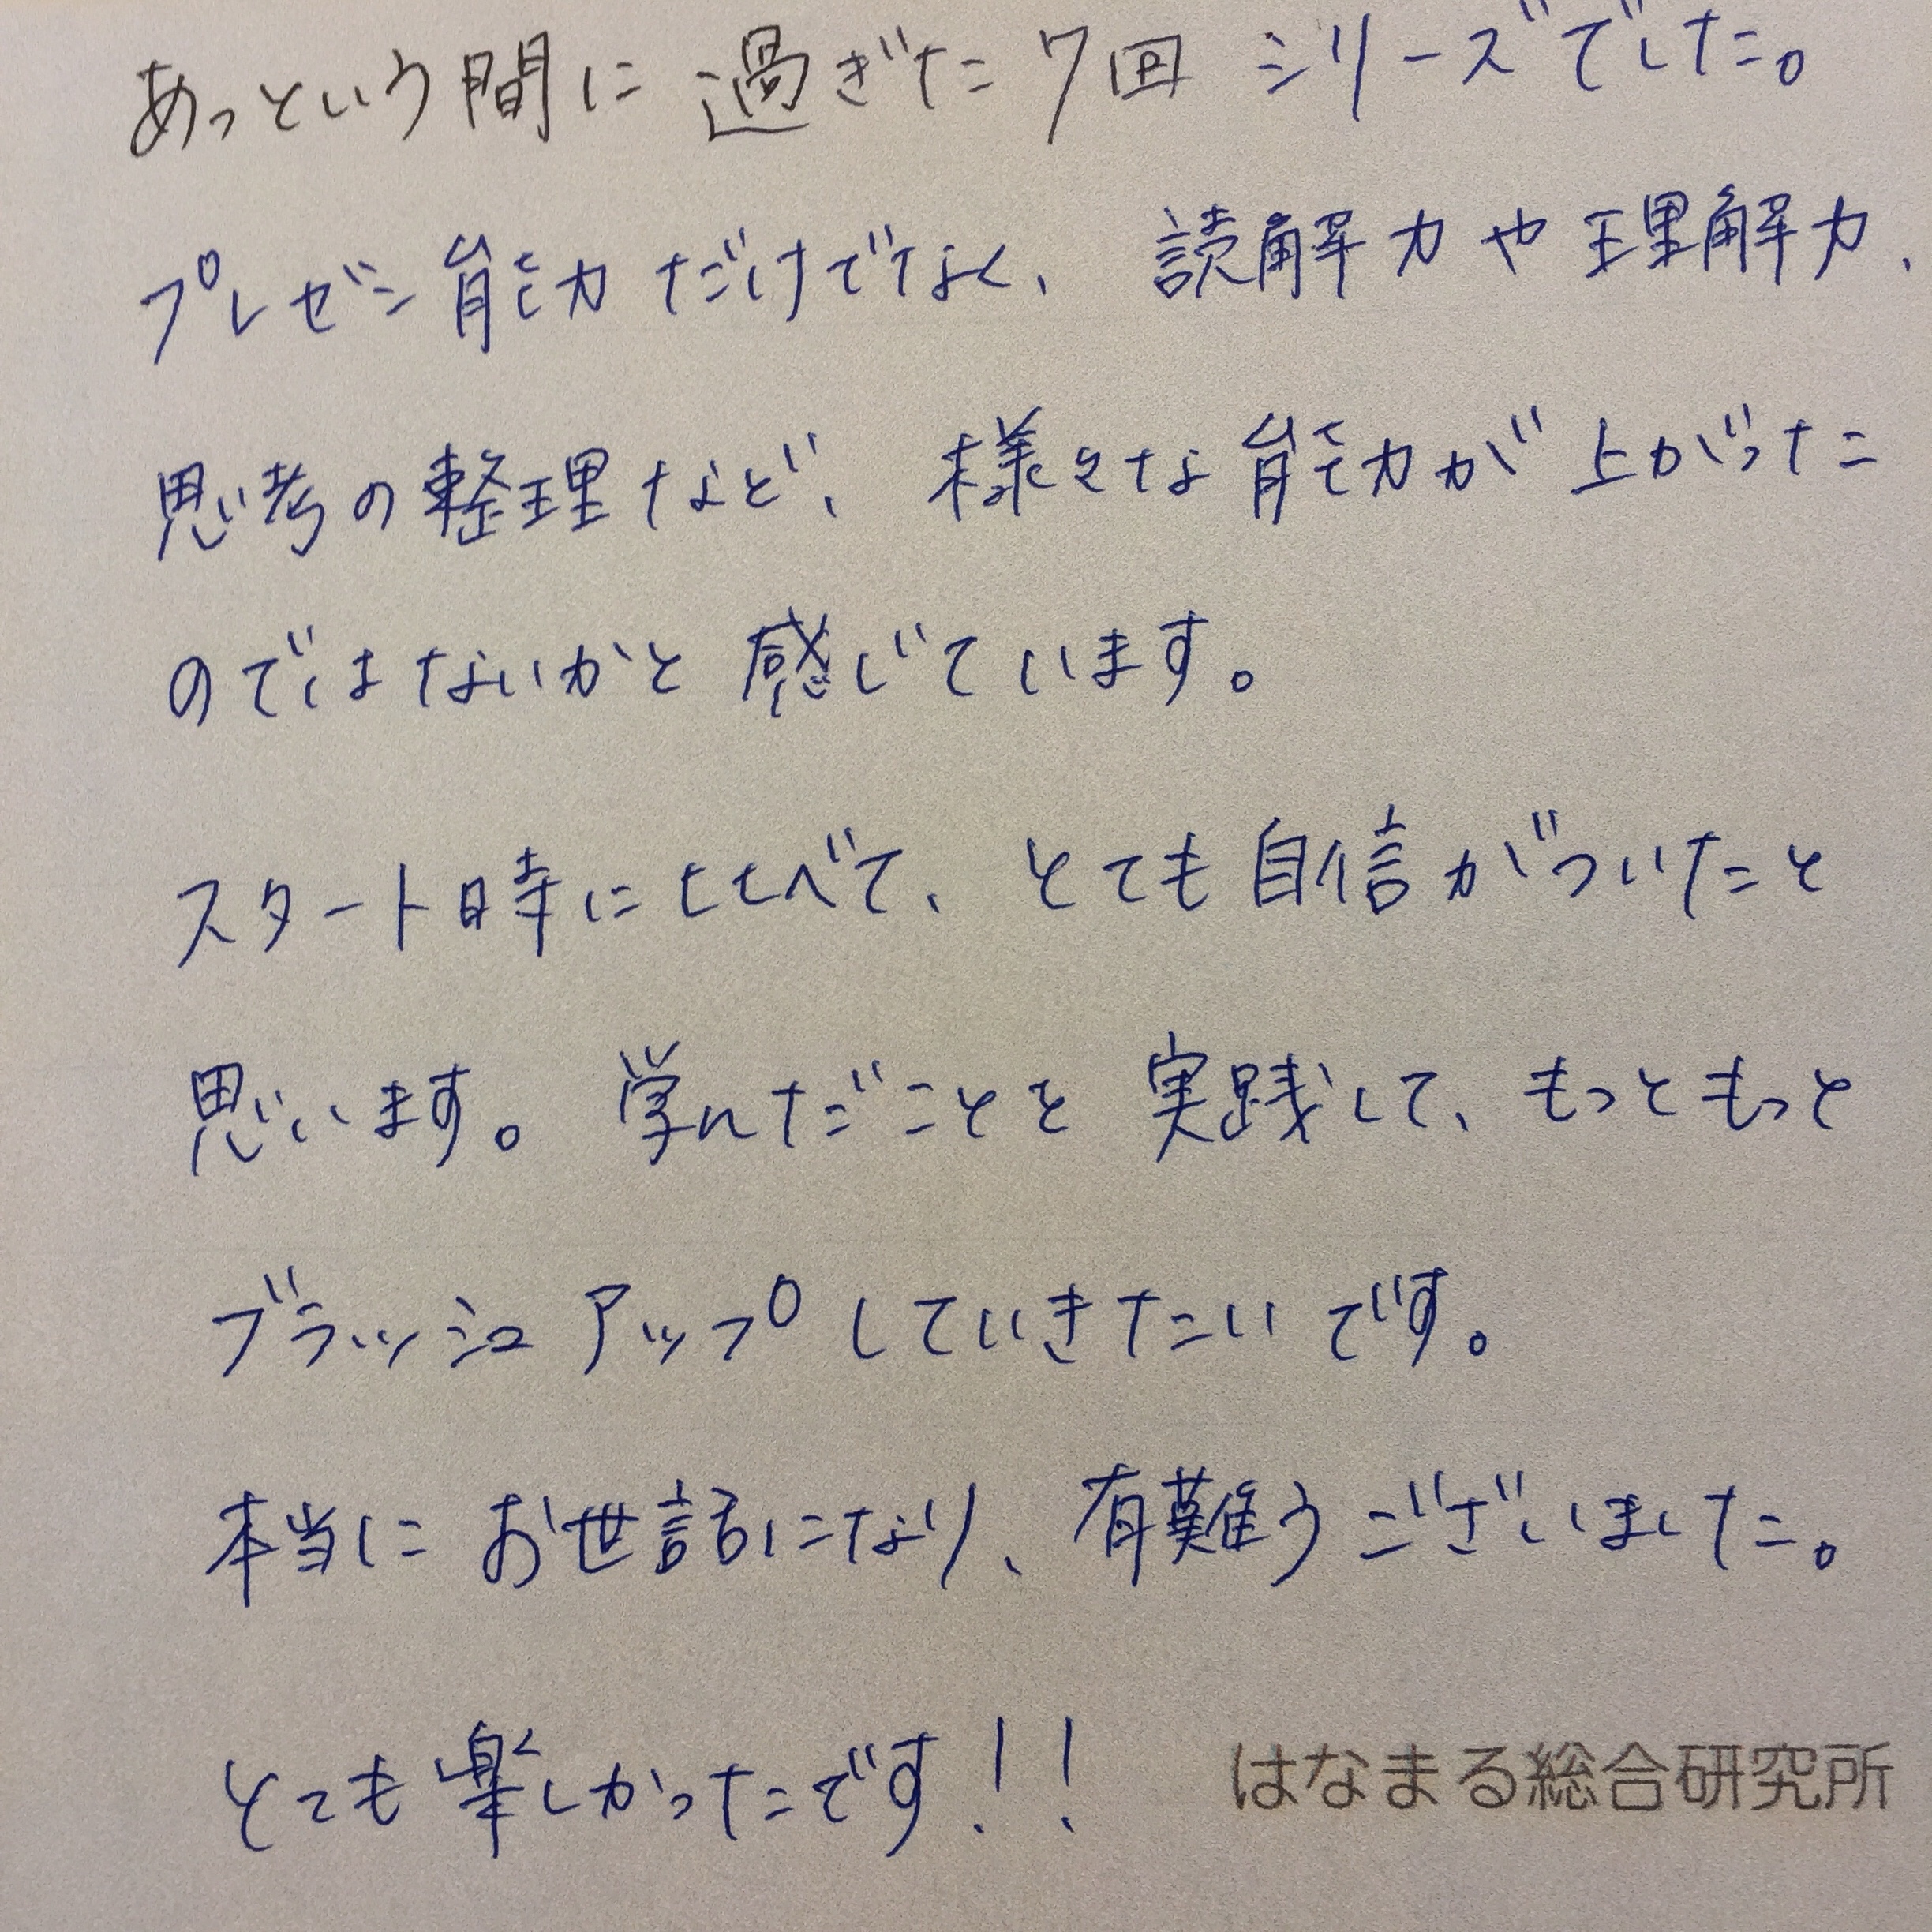 あっという間に過ぎた7回シリーズでした。
プレゼン能力だけでなく、読解力や理解力、
思考の整理など、様々な能力が上がった
のではないかと感じています。
スタート時に比べて、とても自信がついたこと
思います。学んだことを実践して、もっともっと
ブラッシュアップしていきたいです。
本当にお世話になり、有難うございました。
とても楽しかったです!!
はなまる総合研究所